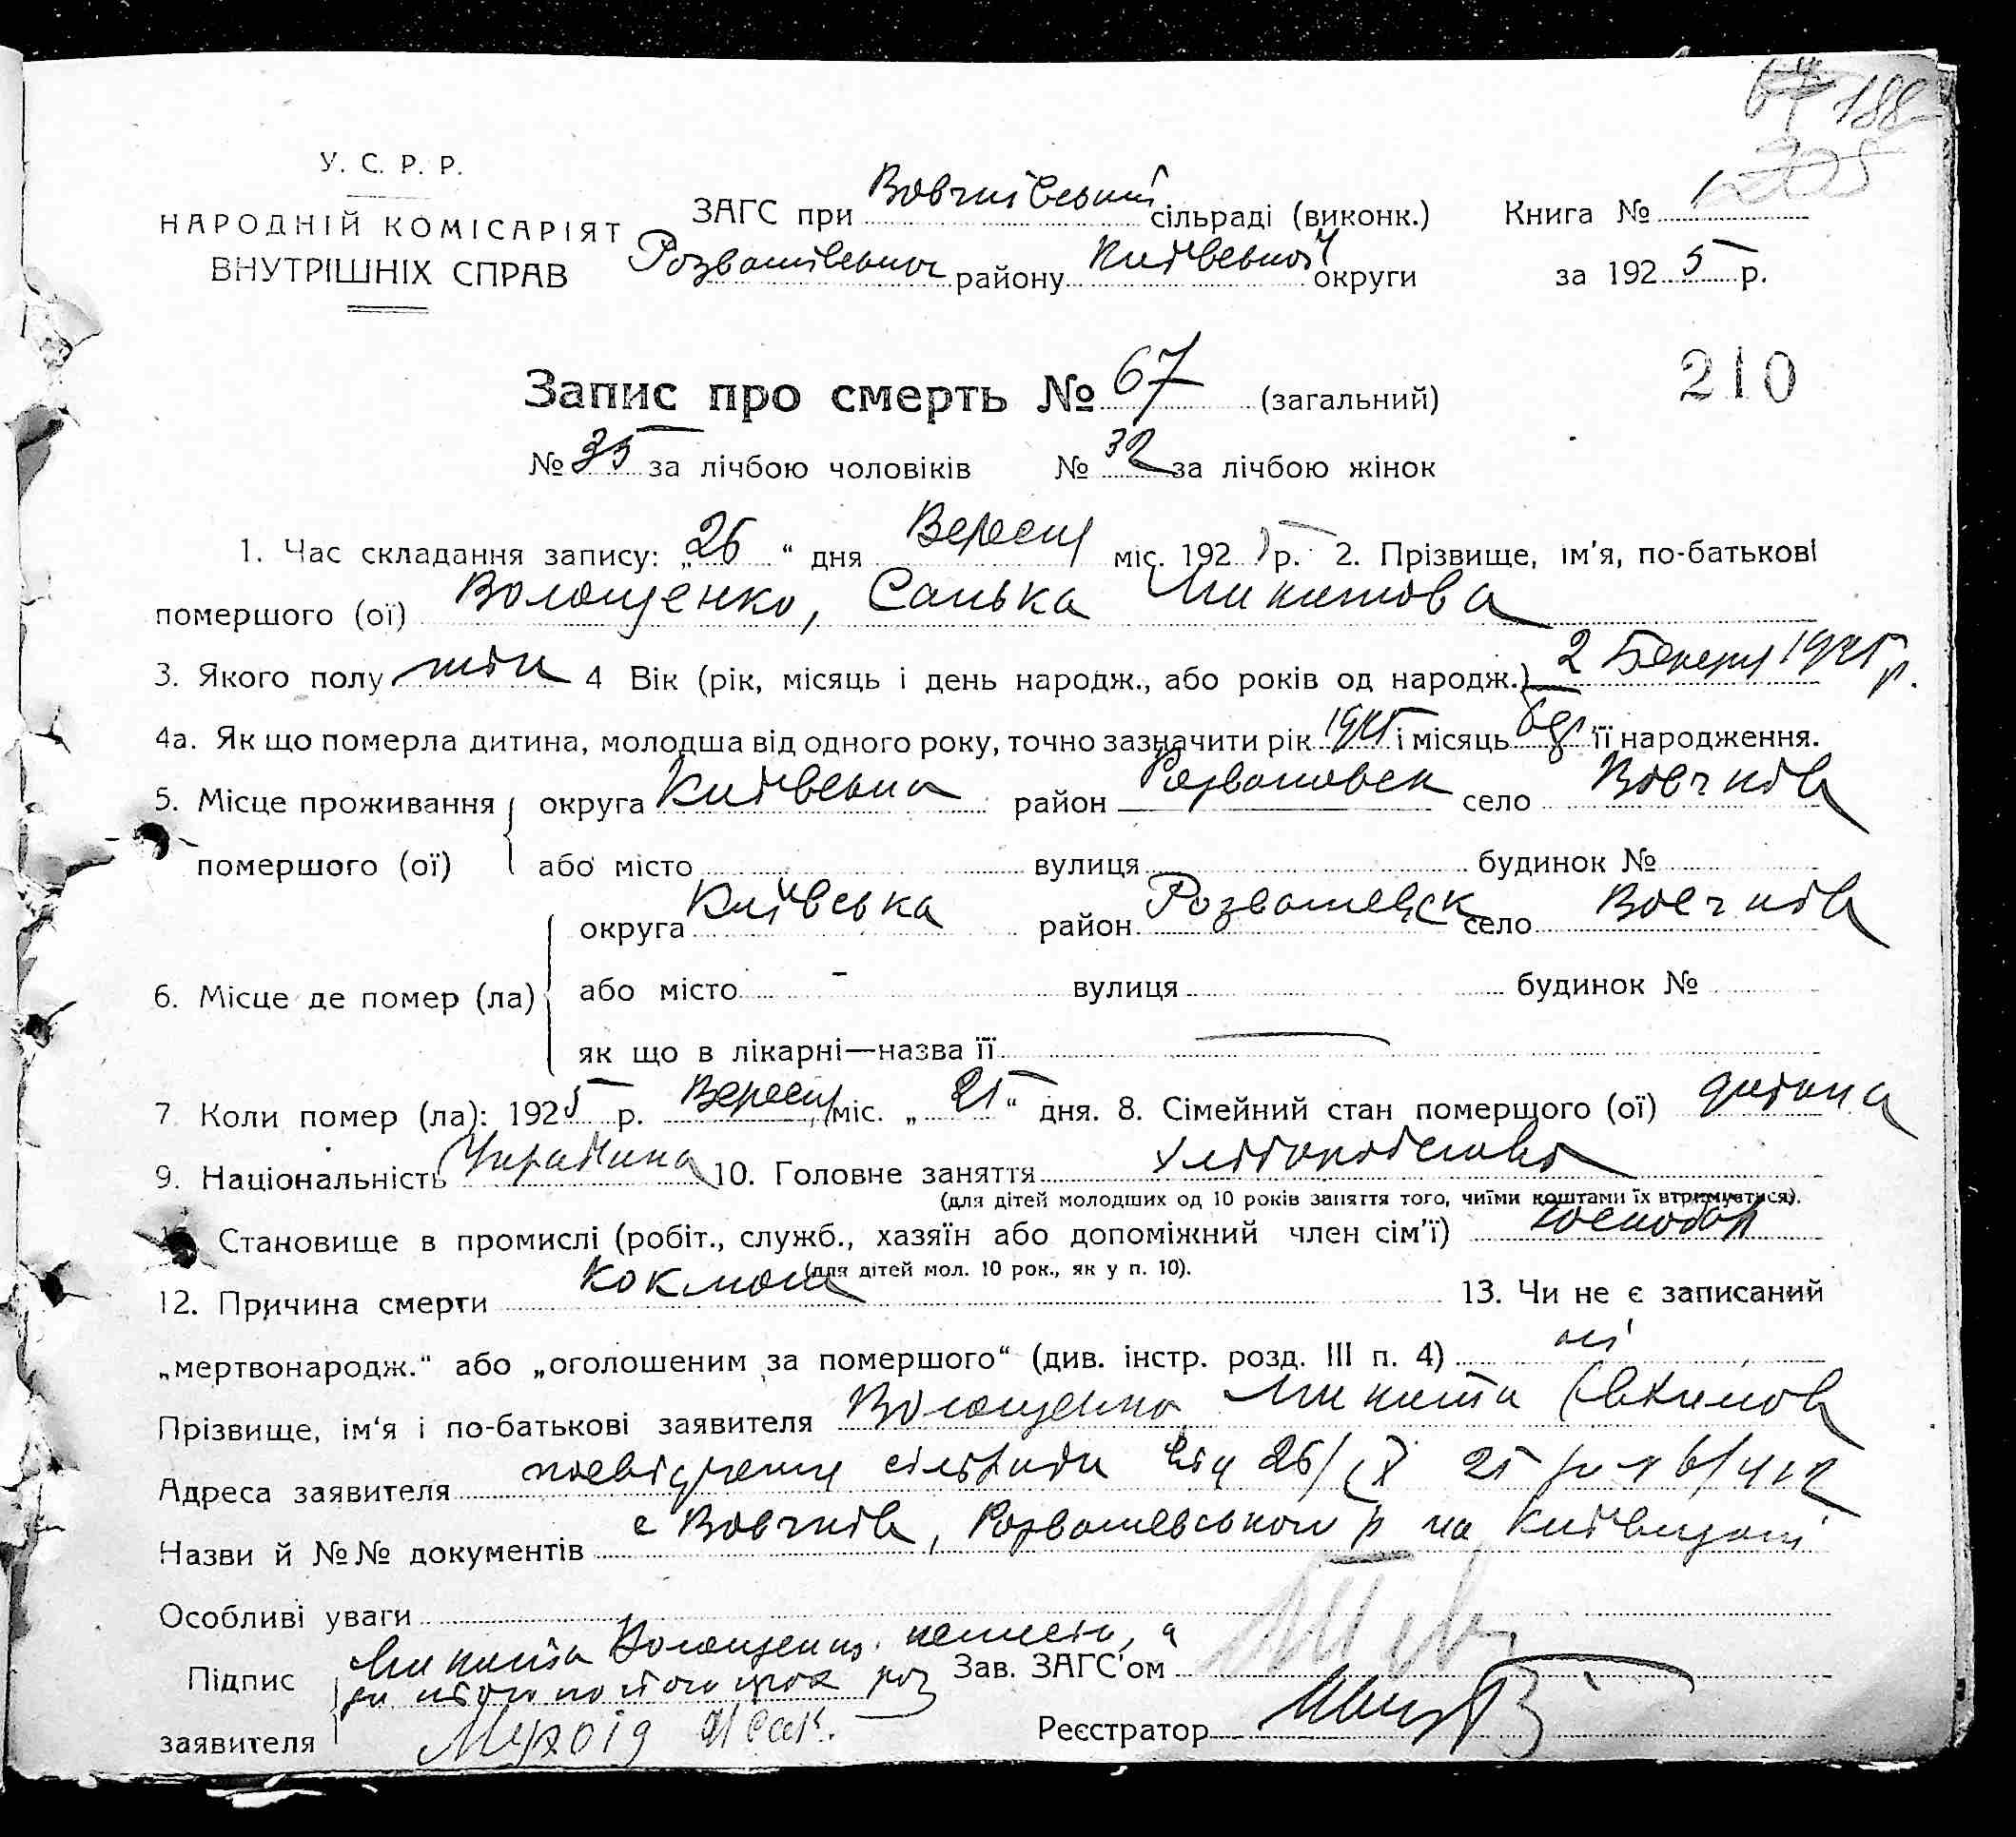 64 188
205
У. С. Р. Р.
НАРОДНІЙ КОМІСАРІЯТ
ВНУТРІШНІХ СПРАВ
ЗАГС при Вовчківський сільраді (виконк.) Книга № 1
Розважівського району Київської округи за 1925 р.
210
Запис про смерть № 67 (загальний)
№ 35 за лічбою чоловіків № 32 за лічбою жінок
1. Час складання запису: „26“ дня Вересня міс. 1925 р. 2. Прізвище, ім'я, по-батькові
помершого (ої) Волощенко, Санька Микитова
3. Якого полу жін 4 Вік (рік, місяць і день народж., або років од народж.) 2 Березня 1925 р.
4а. Як що померла дитина, молодша від одного року, точно зазначити рік 1925 і місяць її народження.
5. Місце проживання помершого (ої) округа Київська район Розважевськ село Вовчків
або місто вулиця будинок №
6. Місце де помер (ла) округа Київська район Розважевськ село Вовчків
або місто - вулиця будинок №
як що в лікарні—назва її —
7. Коли помер (ла): 1925 р. Вересня міс. „25“ дня. 8. Сімейний стан помершого (ої) дитина
9. Національність Українка 10. Головне заняття хліборобство
(для дітей молодших од 10 років заняття того, чиїми коштами їх втримується).
Становище в промислі (робіт., служб., хазяїн або допоміжний член сім'ї) господар
(для дітей мол. 10 рок., як у п. 10).
12. Причина смерти Коклюш 13. Чи не є записаний
„мертвонародж.“ або „оголошеним за помершого“ (див. інстр. розд. III п. 4) ні
Прізвище, ім'я і по-батькові заявителя Волощенко Микита Євхимов
Адреса заявителя посвідчення сільради від 26/IX 25 р
Назви й №№ документів с Вовчків, Розважевського р на Київщині
Особливі уваги
Підпис заявителя Микита Волощенко неписьм, а
за нього по його прох роз
Зав. ЗАГС'ом
Реєстратор